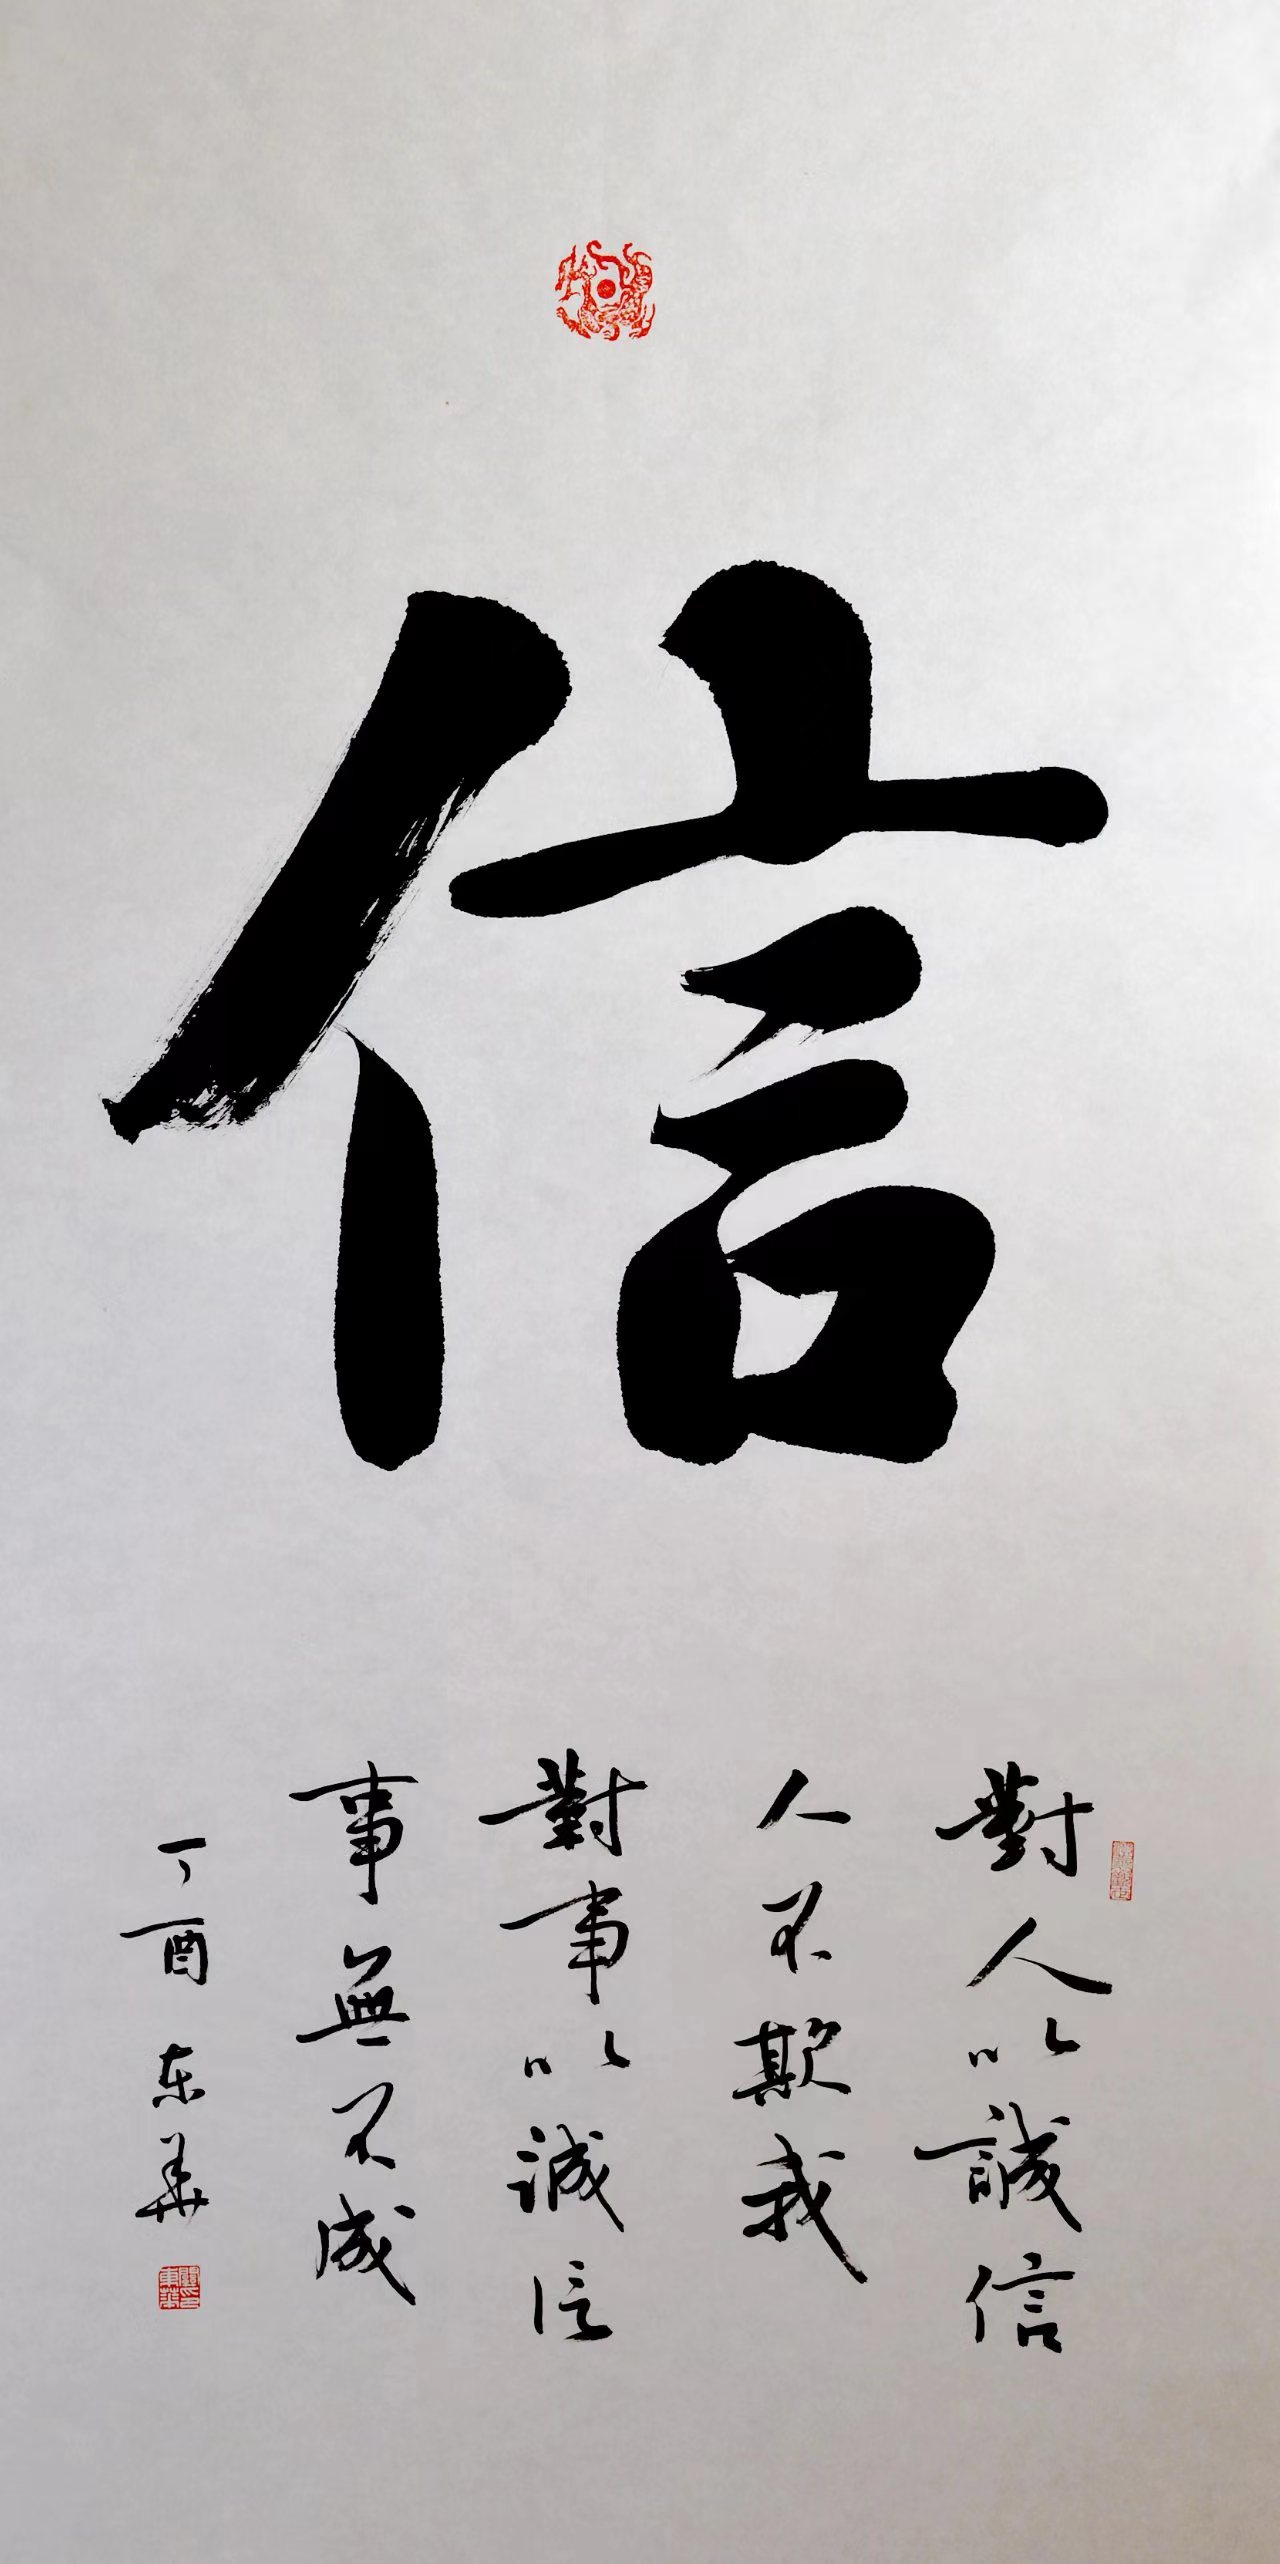 信
對人以誠信
人不欺我
對事以誠信
事無不成
丁酉 东華